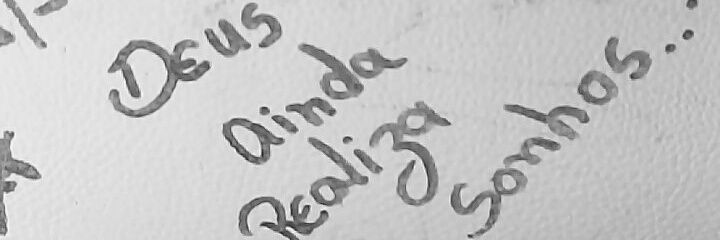 Deus
ainda
Realiza
sonhos...